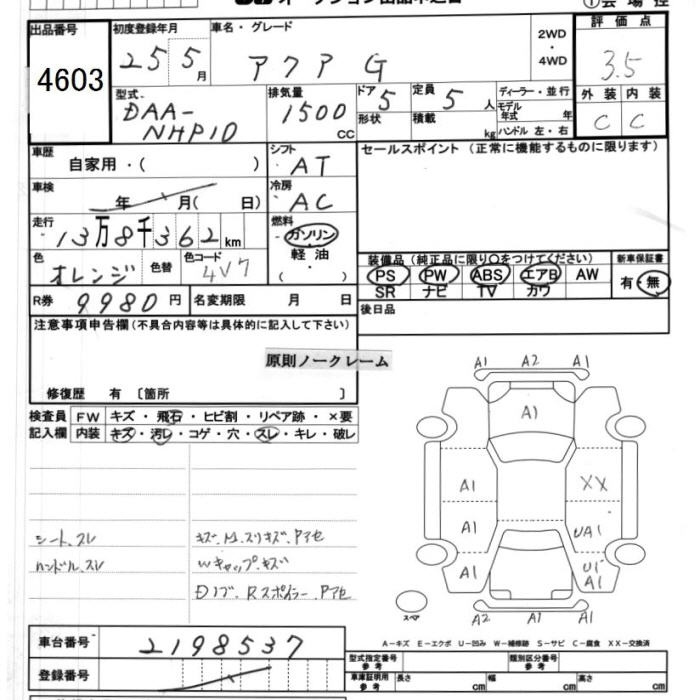 ①会場控
出品番号 初度登録年月 車名・グレード 2WD・4WD 評価点
4603 25 5月 アクア G 3.5
型式 DAA-NHP10 排気量 1500 CC ドア 5 形状 定員 5 人 積載 kg ディーラー・並行 モデル年式 年 ハンドル 左・右 外装 C 内装 C
車歴 自家用・( ) シフト AT セールスポイント(正常に機能するものに限ります)
車検 年 月( 日) 冷房 AC
走行 13万8千362km 燃料 ガソリン 軽油 ・( )
色 オレンジ 色替 色コード 4V7 装備品(純正品に限り○をつけてください) 新車保証書
PS PW ABS エアB AW 有・無
SR ナビ TV カワ
R券 9980円 名変期限 月 日 後日品
注意事項申告欄(不具合内容等は具体的に記入して下さい)
原則ノークレーム
修復歴 有〔箇所 〕
検査員 FW キズ・飛石・ヒビ割・リペア跡・×要
記入欄 内装 キズ・汚レ・コゲ・穴・スレ・キレ・破レ
A1 A2 A1
A1
A1 XX
A1 UA1
A1 U1 A1
A2 A1 A1
スペア
シート、スレ
ハンドル、スレ
Wキャップ、キズ
Dノブ、Rスポイラー、Pアセ
A-キズ E-エクボ U-凹み W-補修跡 S-サビ C-腐食 XX-交換済
車台番号 2198537
型式指定番号 参考 類別区分番号 参考
登録番号 車庫証明用 参考 長さ cm 幅 cm 高さ cm